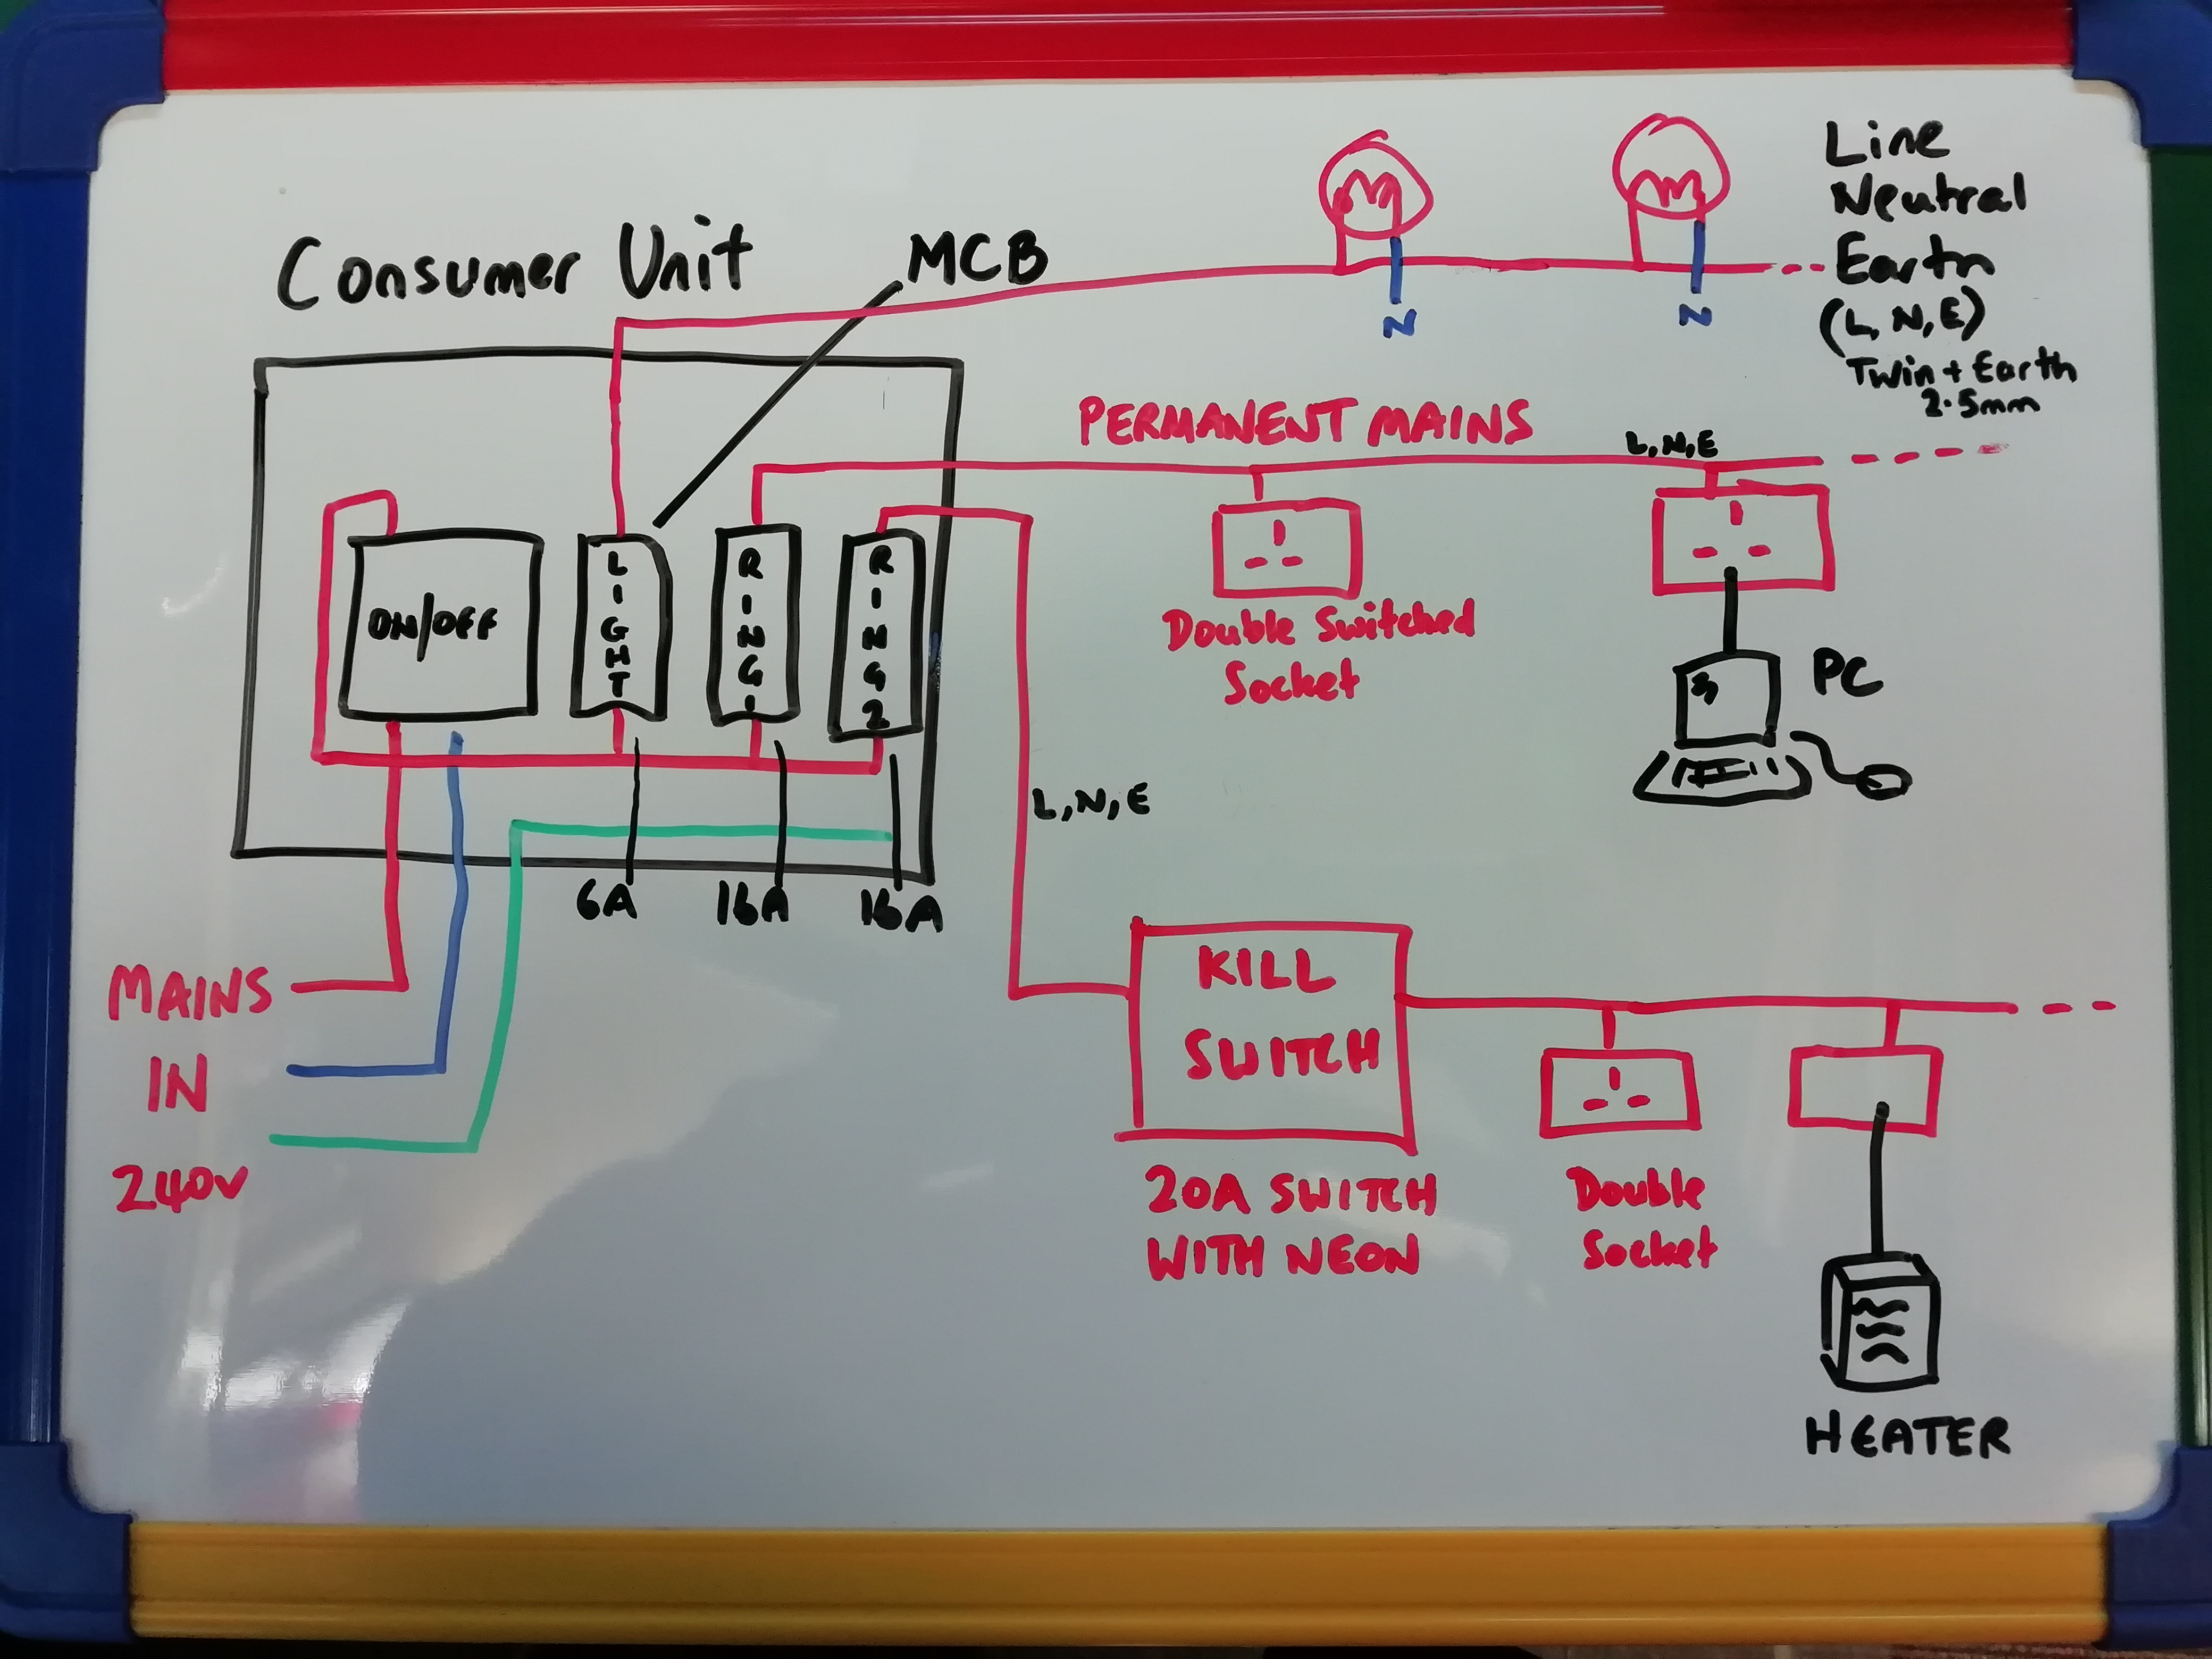 Consumer Unit
MCB
N
N
Line
Neutral
Earth
(L, N, E)
Twin + Earth
2.5mm
PERMANENT MAINS
L, N, E
ON/OFF
LIGHT
RING 1
RING 2
Double Switched
Socket
PC
L, N, E
6A
16A
16A
MAINS
IN
240v
KILL
SWITCH
20A SWITCH
WITH NEON
Double
Socket
HEATER